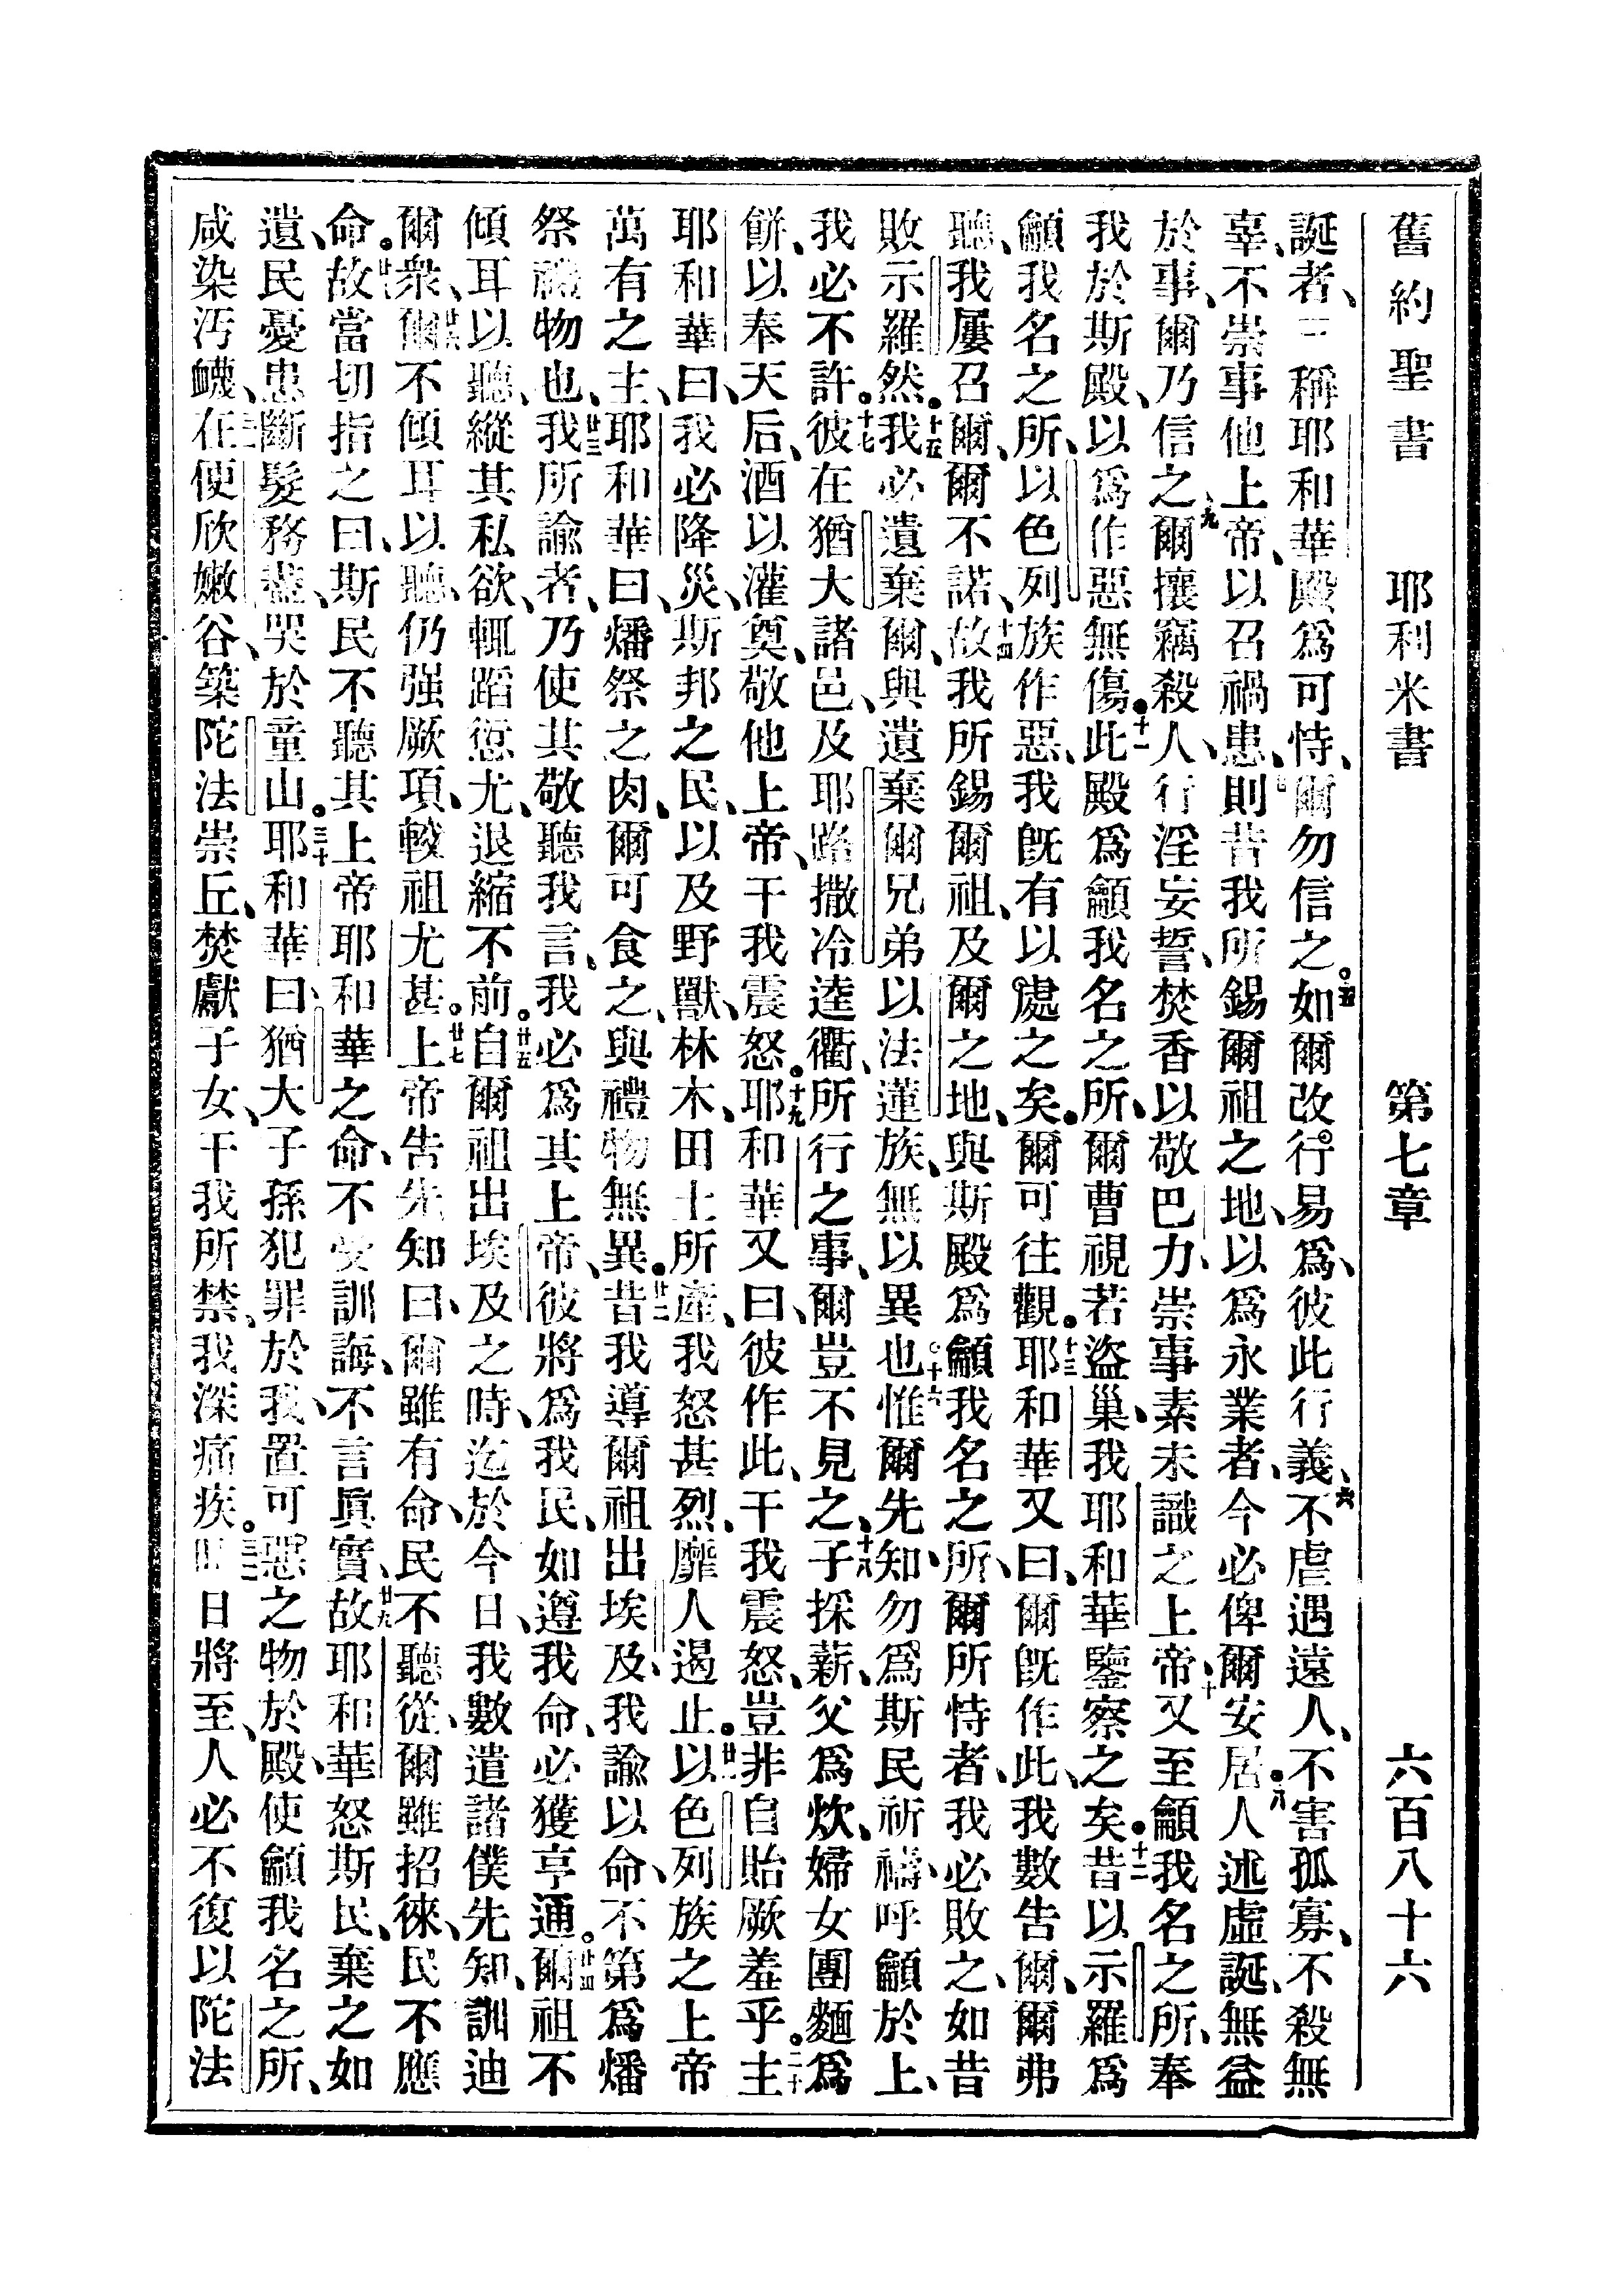 舊約聖書 耶利米書 第七章 六百八十六
誕者、三稱耶和華殿爲可恃、爾勿信之。五如爾改行、易爲、彼此行義、六不虐遇遠人、不害孤寡、不殺無
辜、不崇事他上帝、以召禍患、七則昔我所錫爾祖之地、以爲永業者、今必俾爾安居。八人述虛誕、無益
於事、爾乃信之、九爾攘竊殺人、行淫妄誓、焚香以敬巴力、崇事素未識之上帝、十又至龥我名之所、奉
我於斯殿、以爲作惡無傷。十一此殿爲龥我名之所、爾曹視若盜巢、我耶和華鑒察之矣。十二昔以示羅爲
龥我名之所、以色列族作惡、我旣有以處之矣。爾可往觀。十三耶和華又曰、爾旣作此、我數告爾、爾弗
聽、我屢召爾、爾不諾、十四故我所錫爾祖、及爾之地、與斯殿爲龥我名之所、爾所恃者、我必敗之、如昔
敗示羅然。十五我必遺棄爾、與遺棄爾兄弟以法蓮族、無以異也。十六惟爾先知、勿爲斯民祈禱、呼龥於上、
我必不許。十七彼在猶大諸邑、及耶路撒冷逵衢、所行之事、爾豈不見之、十八子採薪、父爲炊、婦女團麵爲
餅、以奉天后、酒以灌奠、敬他上帝、干我震怒。十九耶和華又曰、彼作此、干我震怒、豈非自貽厥羞乎。二十主
耶和華曰、我必降災、斯邦之民、以及野獸、林木、田土所產、我怒甚烈、靡人遏止。廿一以色列族之上帝
萬有之主、耶和華曰、燔祭之肉、爾可食之、與禮物無異。廿二昔我導爾祖出埃及、我諭以命、不第爲燔
祭禮物也、廿三我所諭者、乃使其敬聽我言、我必爲其上帝、彼將爲我民、如遵我命、必獲亨通。廿四爾祖不
傾耳以聽、縱其私欲、輒蹈愆尤、退縮不前。廿五自爾祖出埃及之時、迄於今日、我數遣諸僕先知、訓迪
爾衆、廿六爾不傾耳以聽、仍强厥項、較祖尤甚。廿七上帝告先知曰、爾雖有命、民不聽從、爾雖招徠、民不應
命。廿八故當切指之曰、斯民不聽其上帝耶和華之命、不受訓誨、不言眞實、廿九故耶和華怒斯民、棄之如
遺、民憂患、斷髮務盡、哭於童山。三十耶和華曰、猶大子孫犯罪於我、置可惡之物於殿、使龥我名之所、
咸染汚衊、三一在便欣嫩谷、築陀法崇丘、焚獻子女、干我所禁、我深痛疾。三二日將至、人必不復以陀法